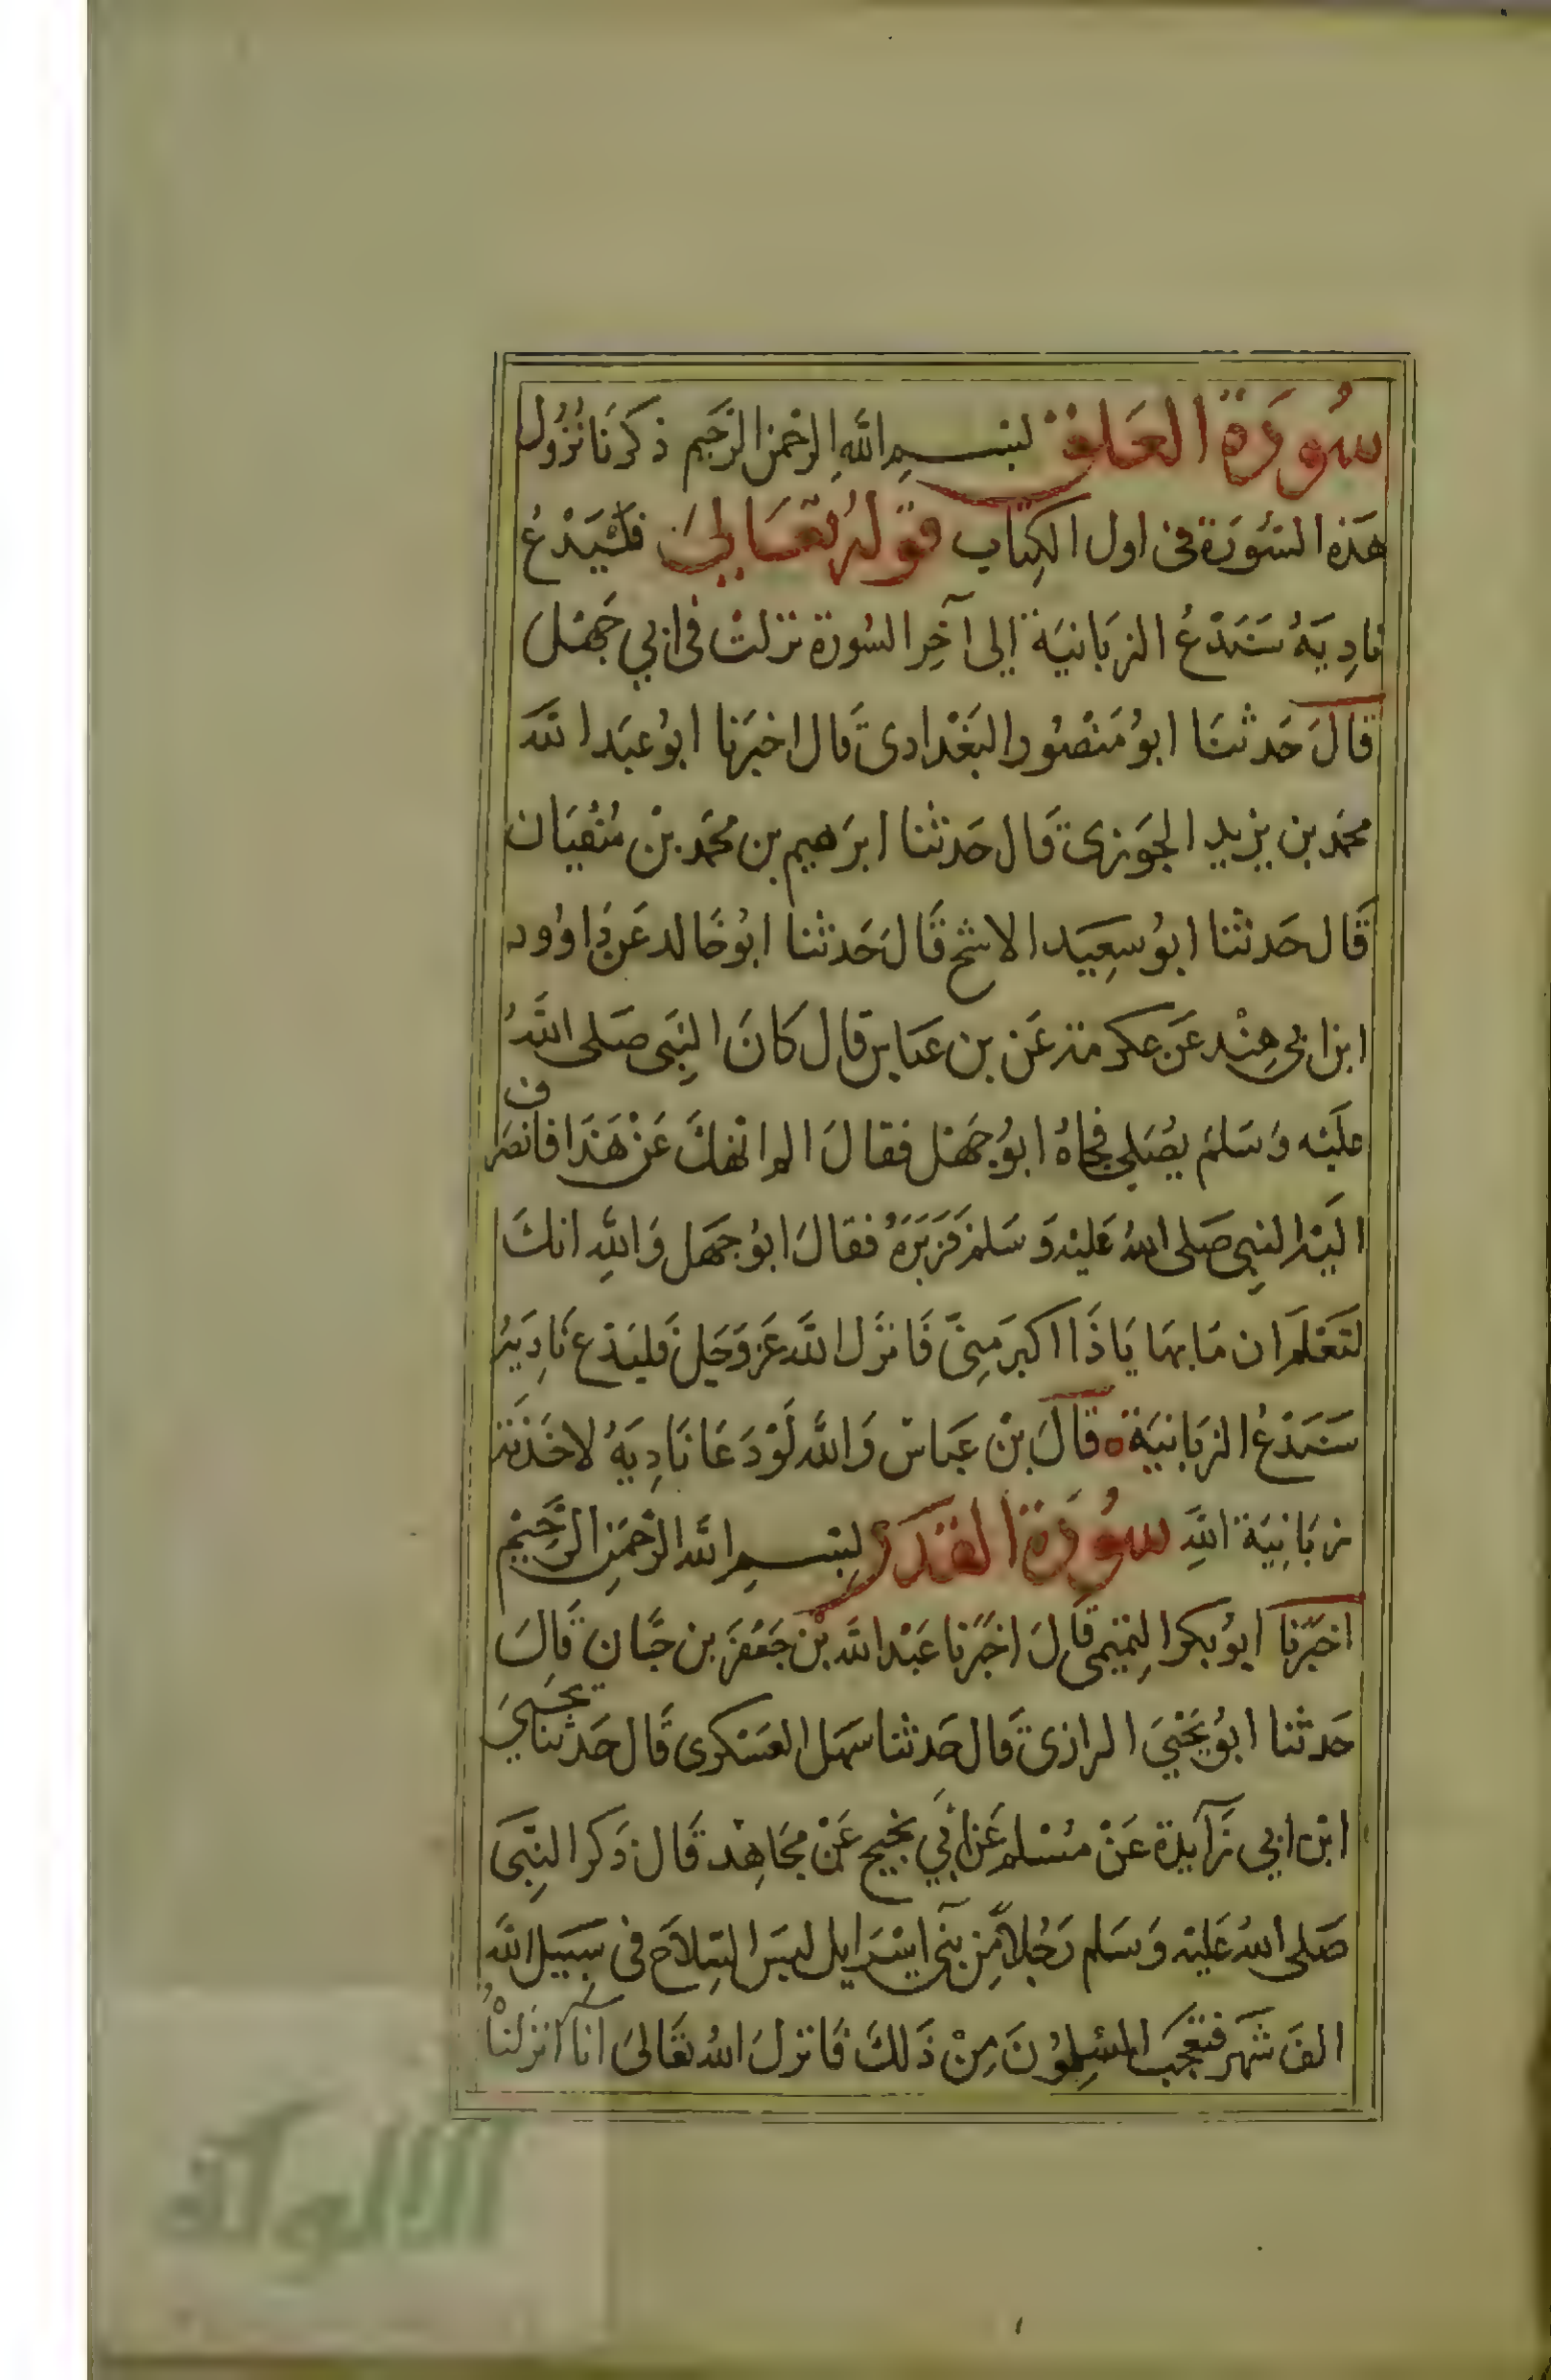 سُورَة العَلق بسم اللهِ الرحمن الرحيم ذكرنا نُزُول
هَذِه السُّورَة في اول الكِتاب قولهُ تعَالىَ فليَدْعُ
نادِيَهُ سَنَدْعُ الزبَانيَة إلى آخِر السُورة نزلتْ في ابي جَهْل
قالَ حَدثنَا ابوُ مَنْصُور البَغْدادى قَال اخبَرنا ابوُ عبَد الله
محمَد بن يزيد الجوَزى قَال حَدثنا ابرَهيم بن محمَد بنْ سُفيَان
قَال حَدثنا ابوُ سعِيَد الاشج قَالَ حَدثنا ابوُ خَالد عَن دَاوُود
ابن ابي هِنْد عَن عكرمة عَن بن عبَاس قال كانَ النبِي صَلى اللهُ
عليَه وَسَلم يصُلى فجاهُ ابوُ جَهْل فقالَ الم انهكَ عَنْ هَذَا فانصَرف
اليَه النبِي صَلى اللهُ عَليْه وَسَلم فزَبَرَهُ فقالَ ابوُ جَهَل وَاللهِ انكَ
لتَعْلمَ ان مَا بها يَا ذَا اكبرَ مِنىّ فَانزَل اللهَ عَز وَجَل فَليَدْع نَادِيَهُ
سَنَدْعُ الزبَانيَة ه قَالَ بنْ عبَاس وَالله لَوْ دَعَا نَادِيَهُ لاخَذْته
زبَانِيَة اللهِ سُورَة القدَر بسم الله الرحْمَن الرَّحِيْم
اخبَرنا ابوُ بكر التميمى قَالَ اخبَرنا عَبْد الله بْن جَعْفَر بن حبَّان قَالَ
حَدثنا ابوُ يَحْيَى الرازى قَال حَدثنا سَهل العَسْكرى قَال حَدثنا يحيىَ
ابْن ابي زَآيدة عَنْ مسْلم عَن ابي نجيح عَنْ مجَاهِد قَال ذَكر النبِّى
صَلى اللهُ عَليْه وَسَلم رَجُلاً مِّن بنى اسْرَايل لبسَ السِلاَح في سبِيَل اللهَ
الفَ شَهْر فتعَجَب المسْلِموُنَ مِنْ ذَلكَ فَانزلَ اللهُ تعَالىَ انآ انزَلنْاهُ
الألوكة